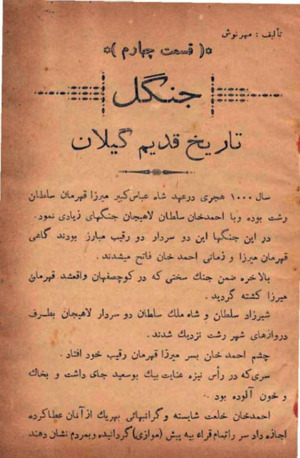 تألیف : مهرنوش
(قسمت چهارم)
جنگل
تاریخ قدیم گیلان
سال ۱۰۰۰ هجری درعهد شاه عباس کبیر میرزا قهرمان سلطان
رشت بوده وبا احمدخان سلطان لاهیجان جنگهای زیادی نمود.
در این جنگها این دو سردار دو رقیب مبارز بودند گاهی
قهرمان میرزا و زمانی احمد خان فاتح میشدند .
بالاخره ضمن جنگ سختی که در کوچصفهان واقعشد قهرمان
میرزا کشته گردید .
شیرزاد سلطان و شاه ملک سلطان دو سردار لاهیجان بطرف
دروازهای شهر رشت نزدیک شدند .
چشم احمد خان بسر میرزا قهرمان رقیب خود افتاد .
سری که در رأس نیزه عنایت بیک بوسعید جای داشت و بخاک
و خون آلوده بود .
احمدخان خلعت شایسته و گرانبهائی بهریک از آنان عطا کرده
اجازه داد سر را تمام قراء بیه پیش (موازی) گردانیده وبمردم نشان دهند